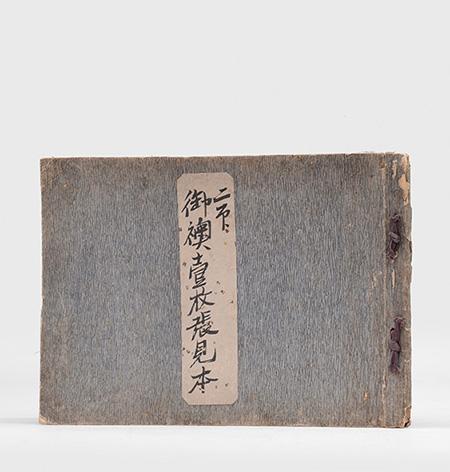 二
御襖壹枚張見本